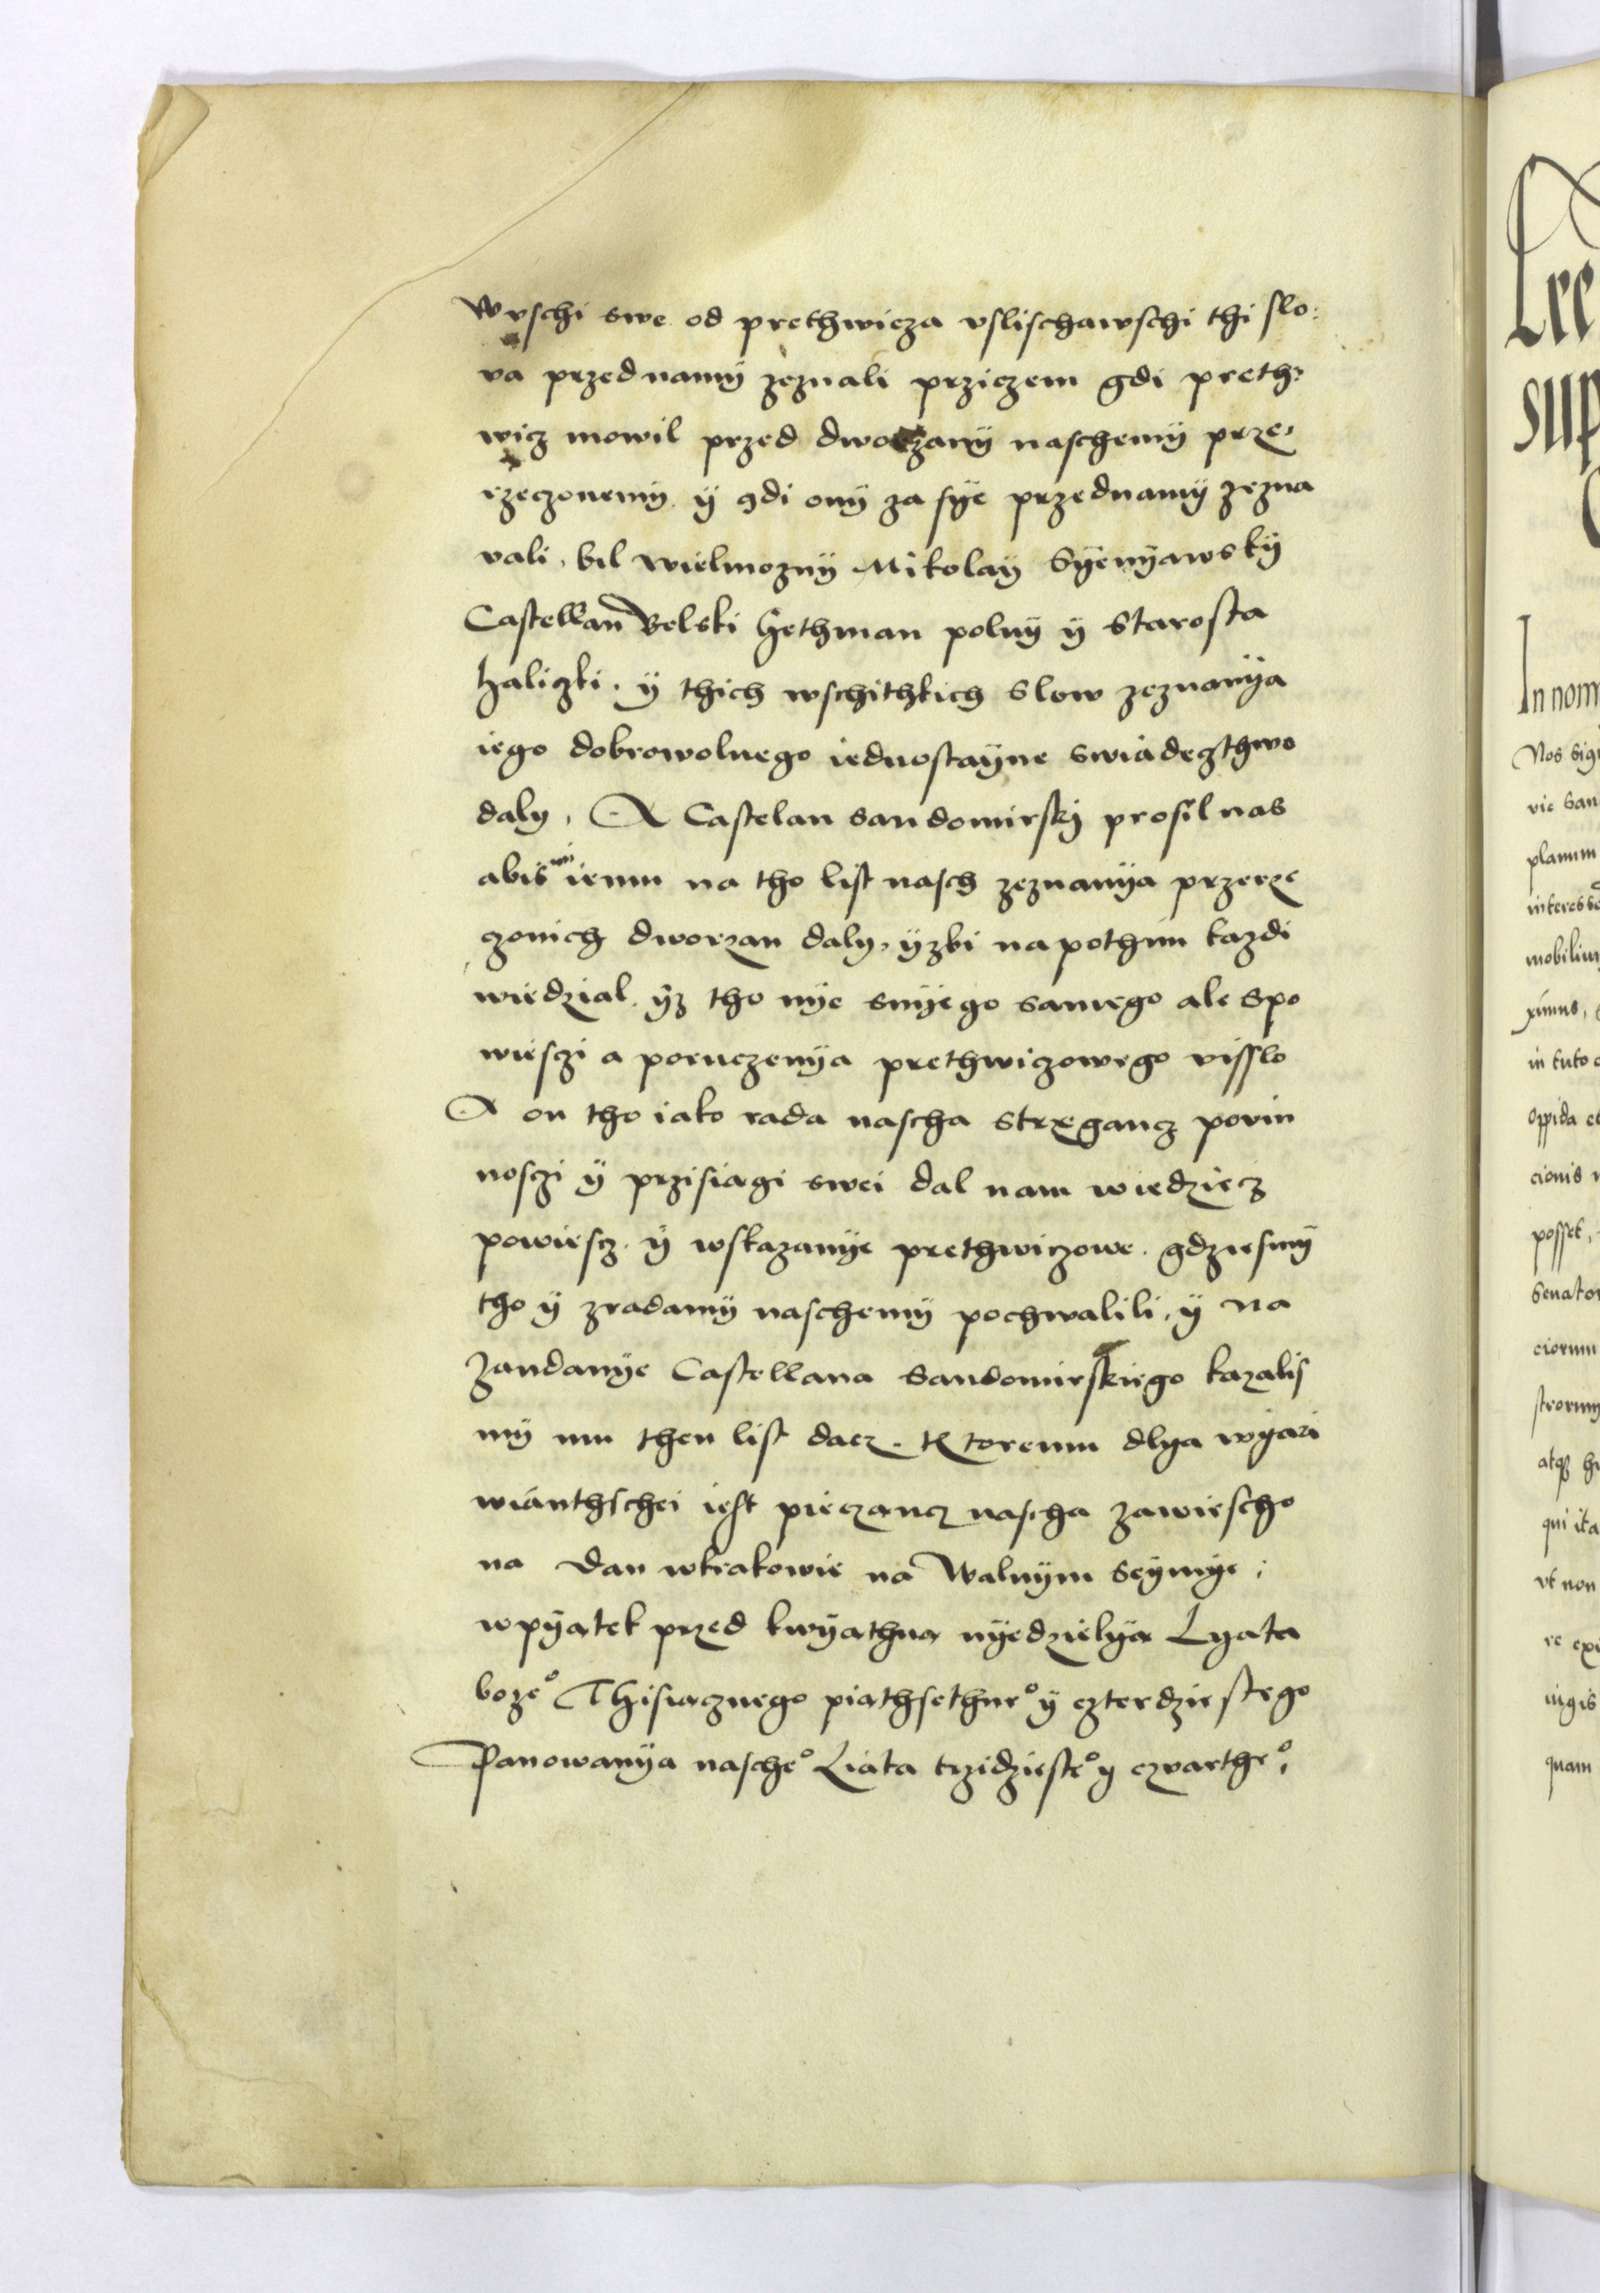 Wvschi swe od prethwicza vslischawschi thi slo:
va przed namÿ zeznali prziczem gdi preth:
wicz mowil przed dworzanÿ naschemÿ prze,
rzeczonemÿ. ÿ gdi onÿ za sÿe przednamÿ zezna
vali, bil wielmoznÿ Mikolaÿ Sÿenÿawskÿ
Castellan Belski Hethman polnÿ ÿ Starosta
haliczki. ÿ thich wschithkich slow zeznanÿa
iego dobrowolnego iednostaÿne swiadeczthwo
daly, A Castelan sandomirskj prosil nas
abismi iemu na tho list nasch zeznanÿa przerze
czonich dworzan daly, ÿzbi napothim kazdi
wiedzial. ÿz tho nÿe snÿego samego ale spo
wiesczi a poruczenÿa prethwiczowego visslo
A on tho iako rada nascha strzegancz povin
nosczi ÿ przisiagi swei dal nam wiedziecz
powiescz. ÿ wskazanÿe prethwiczowe. gdziesmÿ
tho ÿ zradamÿ naschemÿ pochwalili, ÿ na
Zandanÿe Castellana Sandomirskiego kazalis
mÿ mu then list dacz. Ktoremu dlya wÿari
wianthschei iest pieczancz nascha zawiescho
na Dan wkrakowie na Walnÿm Seÿmÿe;
wpÿatek przed kwÿathna nÿedzielÿa Lyata
boze° Thisiacznego piathsethne° ÿ czterdziestego
Panowanÿa nasche° Liata trzidzieste° y czvarthe°;
Lre
sup
In nom
Nos Sigi
vie San
planum
interesse
mobilium
ximus,
in tuto
Oppida et
cionis
posset,
Senator
ciorum
strorum
atq3
qui ita
vt non
re
ingis
quam